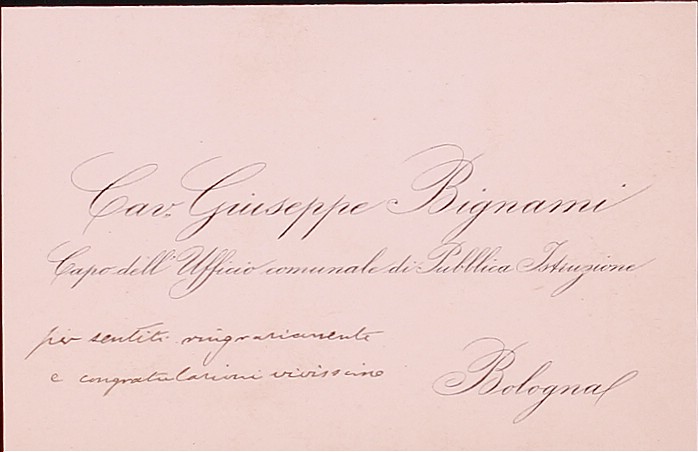 Cav. Giuseppe Bignami
Capo dell'Ufficio comunale di Pubblica Istruzione
più sentiti ringraziamenti
e congratulazioni vivissime
Bologna